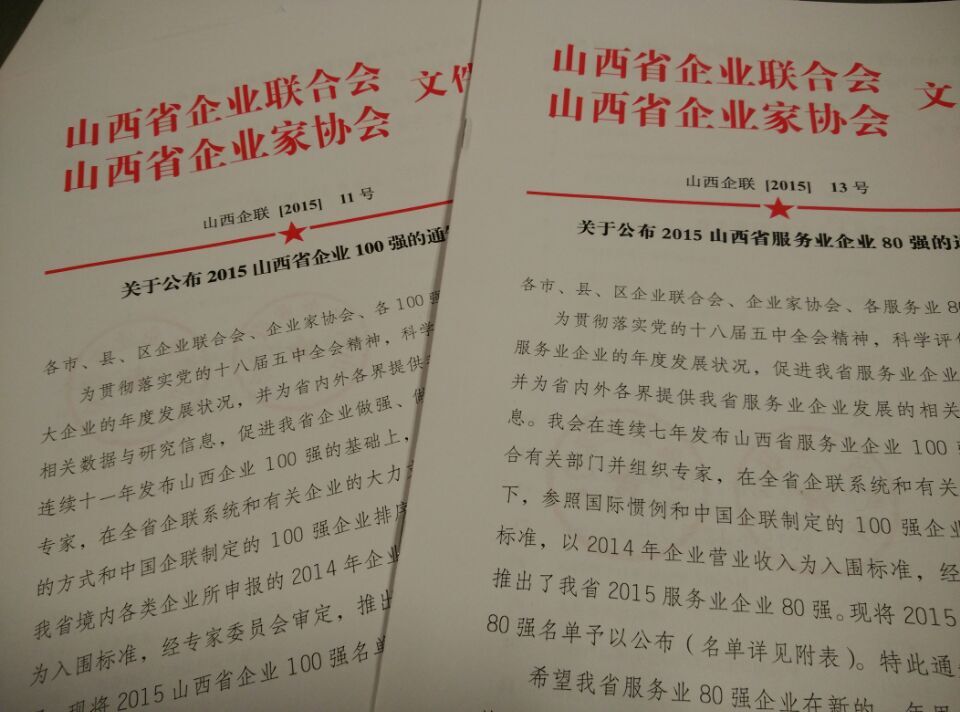 山西省企业联合会
山西省企业家协会
文件
山西企联 [2015] 11 号
关于公布 2015 山西省企业 100 强的通
各市、县、区企业联合会、企业家协会、各 100 强
为贯彻落实党的十八届五中全会精神，科学
大企业的年度发展状况，并为省内外各界提供
相关数据与研究信息，促进我省企业做强、做
连续十一年发布山西企业 100 强的基础上，
专家，在全省企联系统和有关企业的大力支
的方式和中国企联制定的 100 强企业排序
我省境内各类企业所申报的 2014 年企业
为入围标准，经专家委员会审定，推出
现将 2015 山西省企业 100 强名单
山西省企业联合会
山西省企业家协会
文
山西企联 [2015] 13 号
关于公布 2015 山西省服务业企业 80 强的通
各市、县、区企业联合会、企业家协会、各服务业 80
为贯彻落实党的十八届五中全会精神，科学评价
服务业企业的年度发展状况，促进我省服务业企业
并为省内外各界提供我省服务业企业发展的相关
息。我会在连续七年发布山西省服务业企业 100
合有关部门并组织专家，在全省企联系统和有关
下，参照国际惯例和中国企联制定的 100 强企业
标准，以 2014 年企业营业收入为入围标准，经
推出了我省 2015 服务业企业 80 强。现将 2015
80 强名单予以公布（名单详见附表）。特此通
希望我省服务业 80 强企业在新的一年里